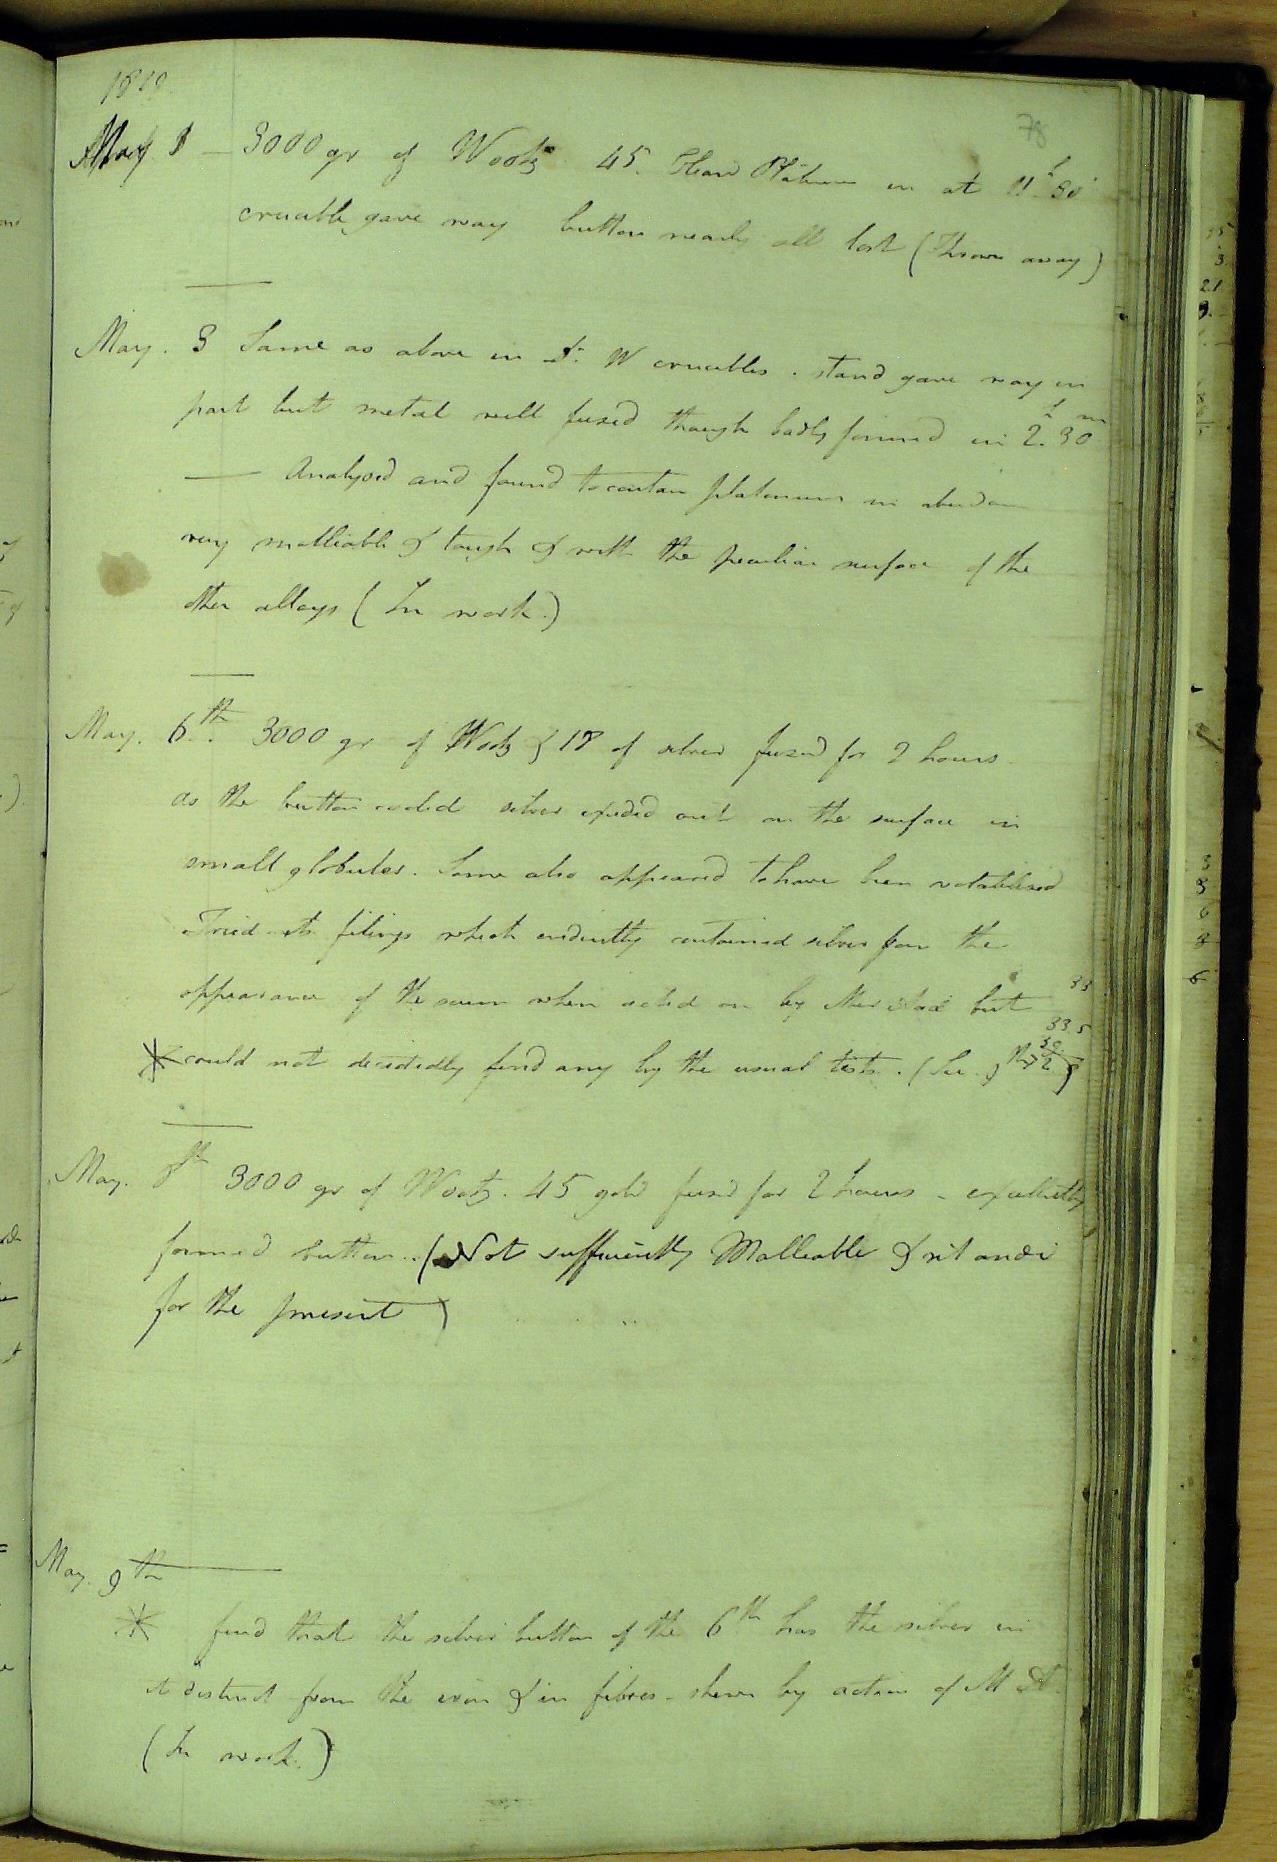 1819
78
May 1 — 3000 gr of Wootz 45. Platinum in at 11h 30'
crucible gave way button nearly all lost (Thrown away)
May. 3 Same as above in Dr. W crucibles. stand gave way in
part but metal well fused though badly formed in 2.h 30m
— Analysed and found to contain platinum in
very malliable & tough & with the peculiar surface of the
other alloys (In work.)
May. 6th. 3000 gr of Wootz & 18 of silver fused for 2 hours.
as the button cooled silver exuded out on the surface in
small globules. Some also appeared to have been volatilised
Tried its filings which evidently contained silver from the
appearance of the scum when acted on by Mur Acid but
33
33.5
32
* could not decidedly find any by the usual tests. (See
May. 8th 3000 gr of Wootz. 45 gold fused for 2 hours - excellently
formed button. (Not sufficiently Malleable &
for the present)
May. 9th
* find that the silver button of the 6th has the silver in
it distinct from the iron & in fibres - shewn by action of M A.
(In work.)